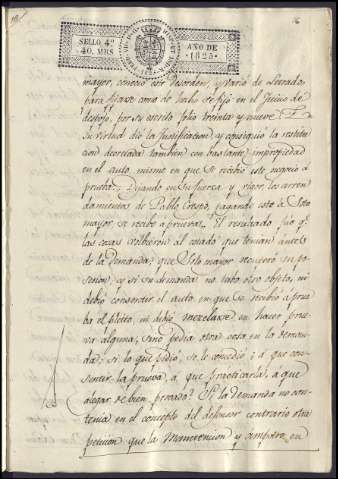 16
SELLO 4º
40. MRS.
AÑO DE
1825
mayor, conoció este desorden, y varió de letrado
para fijarse como de hecho se fijó en el Juicio de
despojo, por su escrito folio treinta y nueve. En
su virtud dió la Justificacion, y consiguió la restitu
cion decretada tambien con bastante impropiedad
en el auto mismo en que se recibió este negocio á
prueba. Dejando en su fuerza y vigor los arren
damientos de Pablo Crespo, pagando este á Soto
mayor, se recibe á prueva. El resultado fue qe.
las cosas volvieron al estado que tenian antes
de la demanda; que Sotomayor recuperó su po
sesion, y si su demanda no tubo otro objeto, ni
debió consentir el auto, en que se recibió á prue
ba el pleito, ni debió mezclarse en hacer prue
va alguna; sino pedia otra cosa en la deman
da; si lo que pidió, se le concedió; á que con
sentir la prueva, á que practicarla, á que
alegar de bien provado? Si la demanda no con
tenia en el concepto del defensor contrario otra
peticion que la Manutencion y amparo en